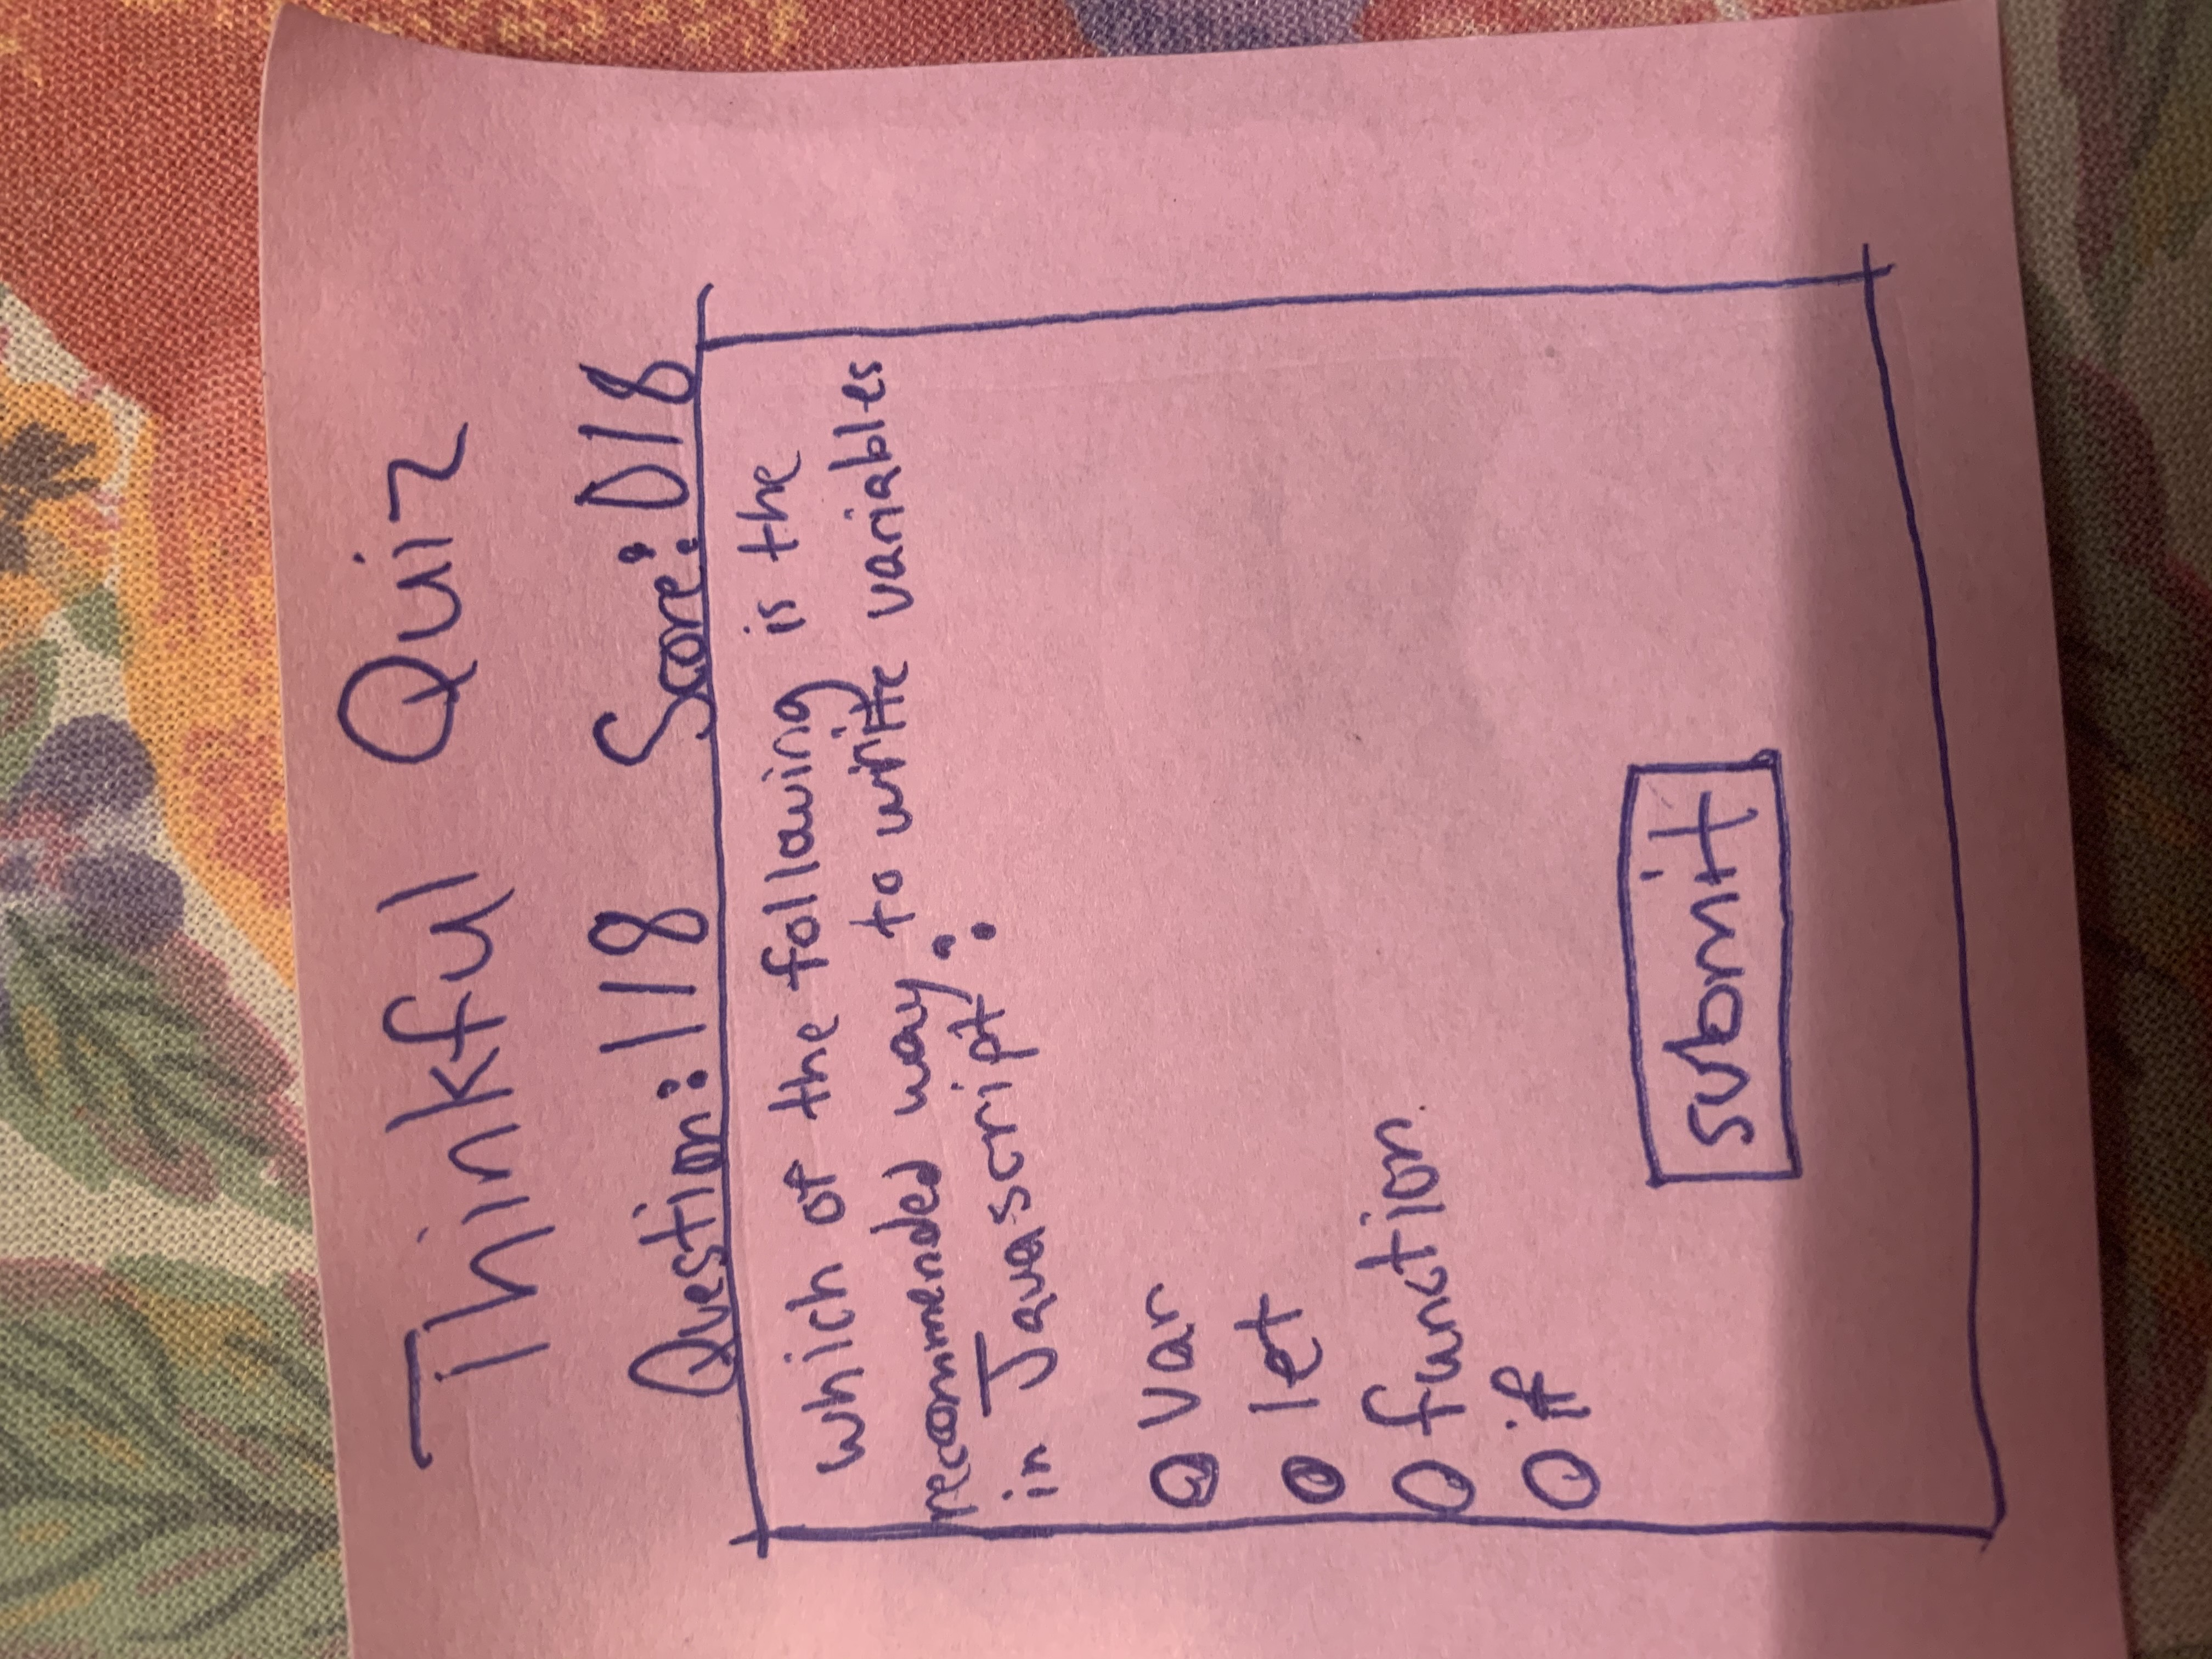 Thinkful Quiz
Question: 1/8 Score: 0/8
Which of the following is the
recommended way to write variables
in Javascript:
var
let
function
if
submit